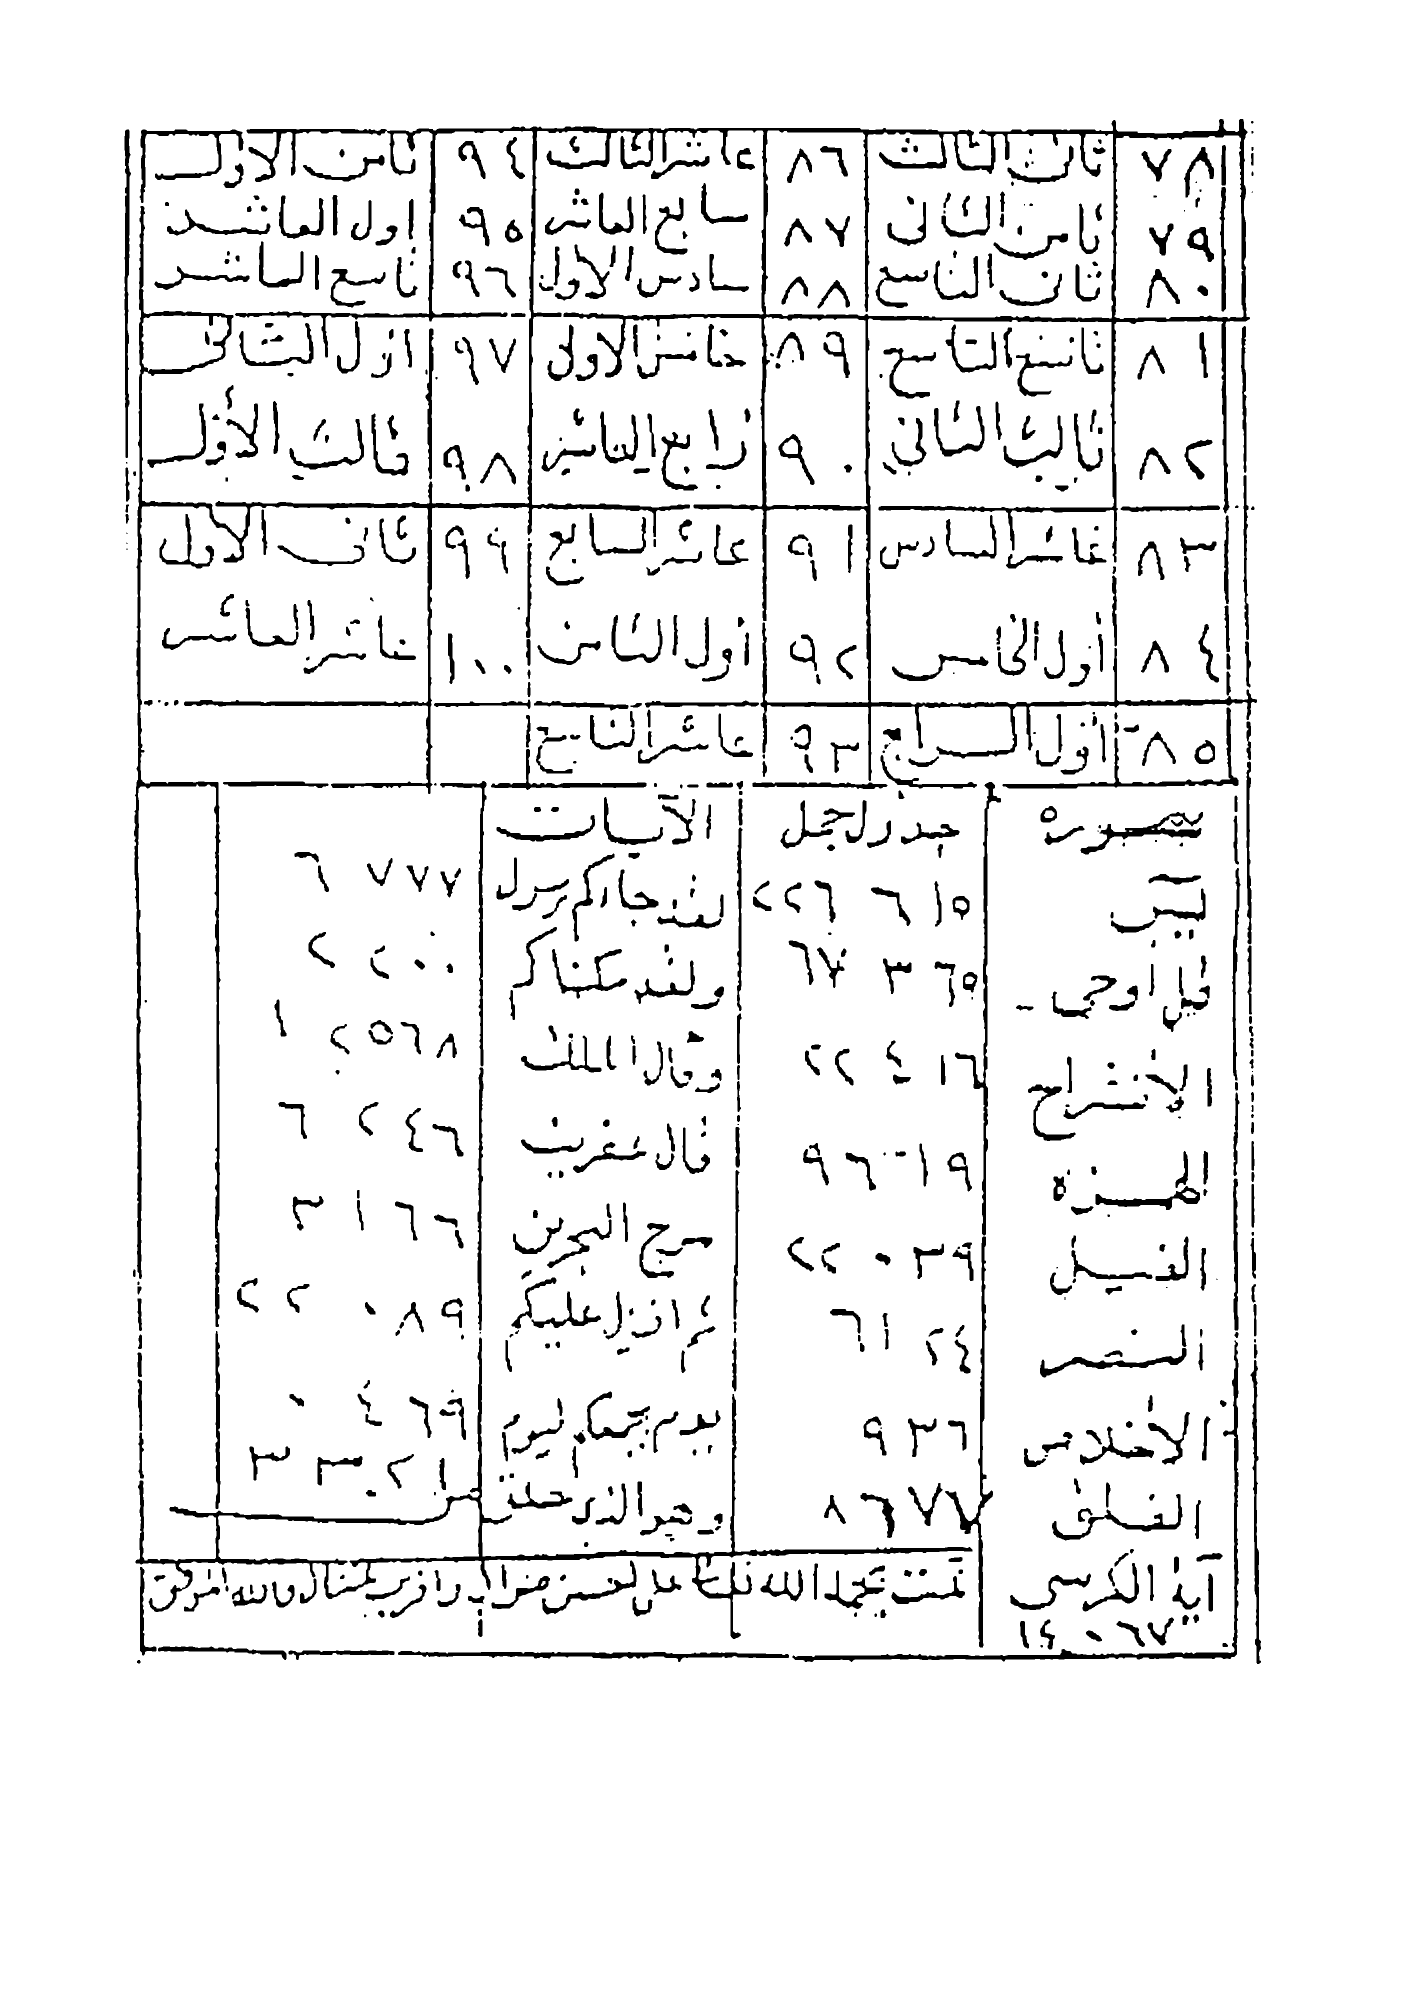 ٧٨ ثانى الثالث ٨٦ عاشر الثالث ٩٤ ثامن الاول
٧٩ ثامن الثانى ٨٧ سابع العاشر ٩٥ اول العاشر
٨٠ ثانى التاسع ٨٨ سادس الاول ٩٦ تاسع العاشر
٨١ تاسع التاسع ٨٩ خامس الاول ٩٧ اول الثانى
٨٢ ثالث الثانى ٩٠ رابع العاشر ٩٨ ثالث الأول
٨٣ عاشر السادس ٩١ عاشر السابع ٩٩ ثانى الاول
٨٤ أول الخامس ٩٢ أول الثامن ١٠٠ عاشر العاشر
٨٥ أول السابع ٩٣ عاشر التاسع
سورة جدول جمل الآيات
يس ٢٢٦٦١٥ لقد جاءكم رسول ٦٧٧٧
قل أوحى ٦٧٣٦٥ ولقد مكناكم ٢٢٠٠
الانشراح ٢٢٤١٦ وقال الملك ١٢٥٦٨
الهمزة ٩٦١٩ قال عفريت ٦٢٤٦
الفيل ٢٢٠٣٩ مرج البحرين ٣١٦٦
النصر ٦١٢٤ ثم انزل عليكم ٢٢٠٨٩
الأخلاص ٩٣٦ يوم يجمعكم ليوم ٠٤٦٩
الفلق ٨٦٧٧ وهو الذى خلق من ٣٣٠٢١
آية الكرسى تمت بحمد الله تعالى على احسن والله الموفق
١٤٠٦٧